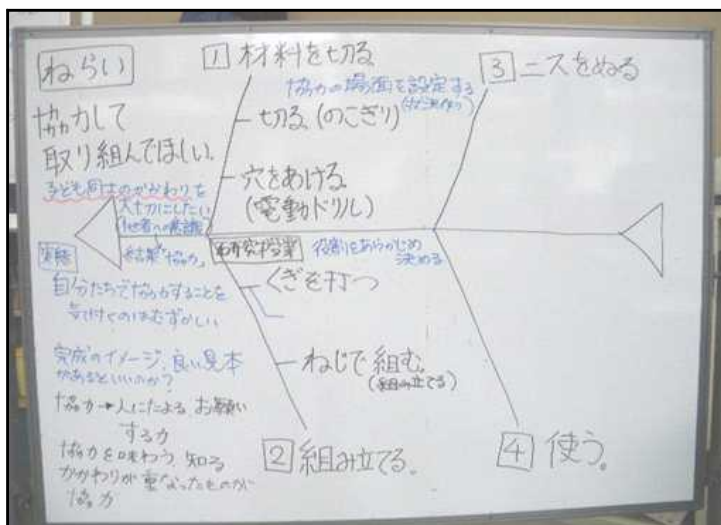 ねらい
協力して
取り組んでほしい。
子ども同士のかかわりを
大切にしたい
他者への意識
結果"協力"
実態
自分たちで協力することを
気付くのはむずかしい
完成のイメージ、良い見本
があるといいのか?
協力→人にたよる、お願い
する力
協力を味わう、知る
かかわりが重なったものが
協力
1 材料を切る
協力の場面を設定する
切る。(のこぎり)
穴をあける。
(電動ドリル)
研究授業
役割をあらかじめ
決める
くぎを打つ
ねじで組む。
(組み立てる)
2 組み立てる。
3 ニスをぬる
4 使う。